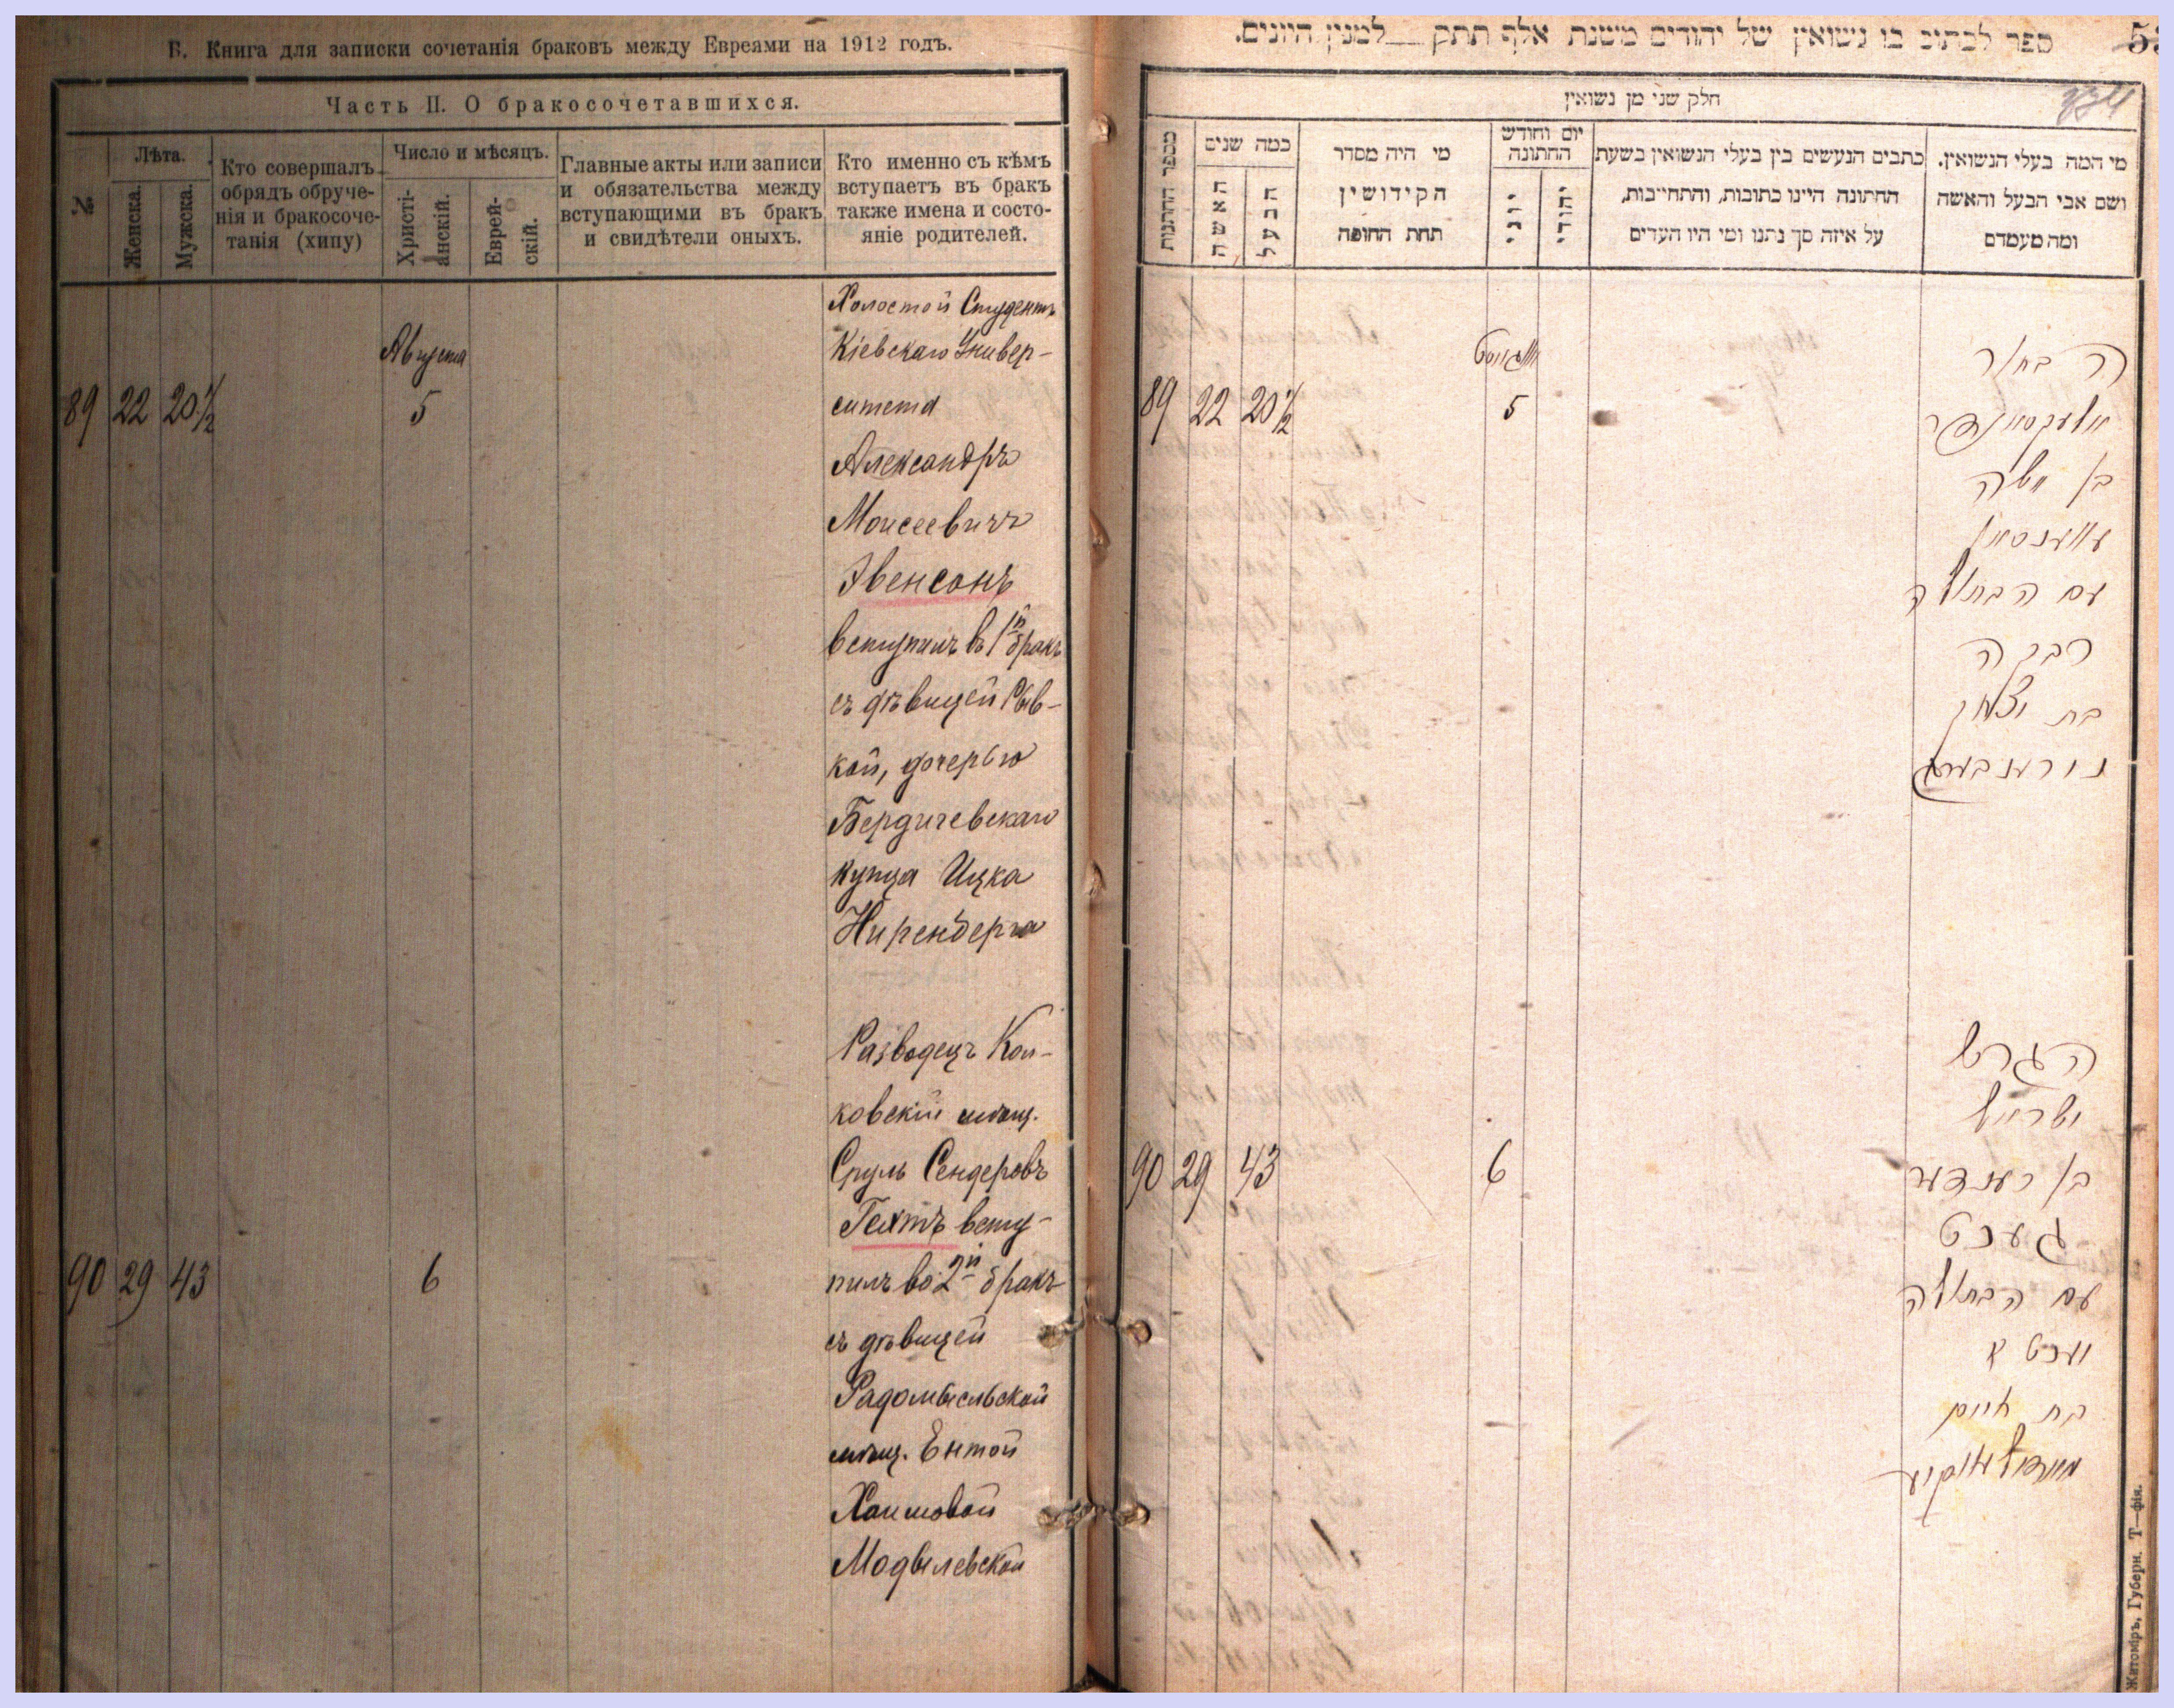 Б. Книга для записки сочетанія браковъ между Евреями на 1912 годъ.
Часть II. О бракосочетавшихся.
№
Лѣта.
Женска.
Мужска.
Кто совершалъ
обрядъ обруче-
нія и бракосоче-
танія (хипу)
Число и мѣсяцъ.
Христі-
анскій.
Еврей-
скій.
Главные акты или записи
и обязательства между
вступающими въ бракъ
и свидѣтели оныхъ.
Кто именно съ кѣмъ
вступаетъ въ бракъ
также имена и состо-
яніе родителей.
Холостой Студентъ
Августа
Кіевскаго Универ-
89 22 20 1/2 5
ситета
Александръ
Моисеевичъ
Эвенсонъ
вступилъ въ 1й бракъ
съ дѣвицей Рыв-
кой, дочерью
Бердичевскаго
купца Ицка
Ниренберга
Разводецъ Кол-
ковскій мѣщ.
Сруль Сендеровъ
Гехтъ всту-
90 29 43 6
пилъ во 2й бракъ
съ дѣвицей
Радомысльской
мѣщ. Ентой
Хаимовой
Модвилевской
ספר לכתוב בו נשואין של יהודים משנת אלף תתק ___ למנין היונים.
חלק שני מן נשואין
מי המה בעלי הנשואין.
ושם אבי הבעל והאשה
ומה מעמדם
כתבים הנעשים בין בעלי הנשואין בשעת
החתונה היינו כתובות, והתחייבות,
על איזה סך נתנו ומי היו העדים
יום וחודש
החתונה
יהודי
יוני
מי היה מסדר
הקידושין
תחת החופה
כמה שנים
הבעל
האשה
מספר החתונות
ה בחור
אויגוסט
89 22 20 1/2 5
אלעקסאנדר
בן משה
עווענסאן
עם הבתולה
רבקה
בת יצחק
נירענבערג
הגרוש
ישראל
90 29 43 6
בן סענדער
געכט
עם הבתולה
יענטא
בת חיים
Житоміръ, Губерн. Т—фія.